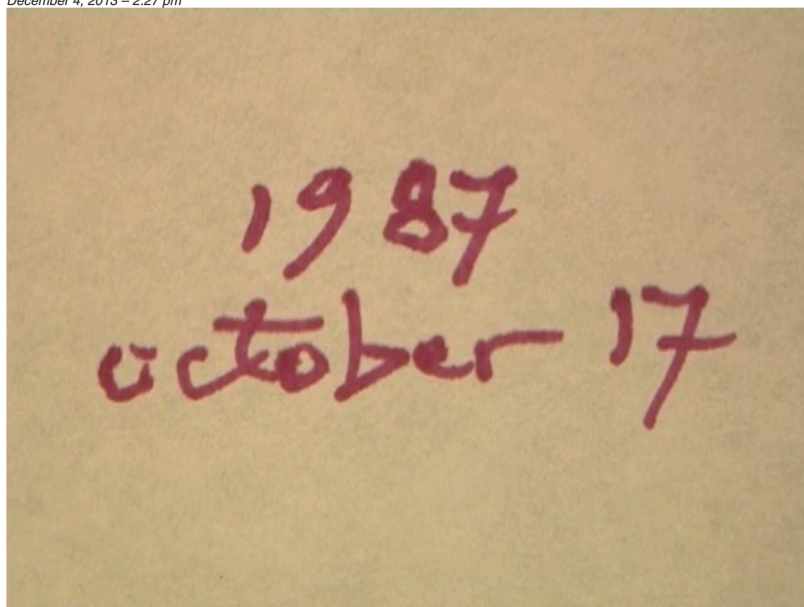 December 4, 2013 – 2:27 pm
1987
october 17